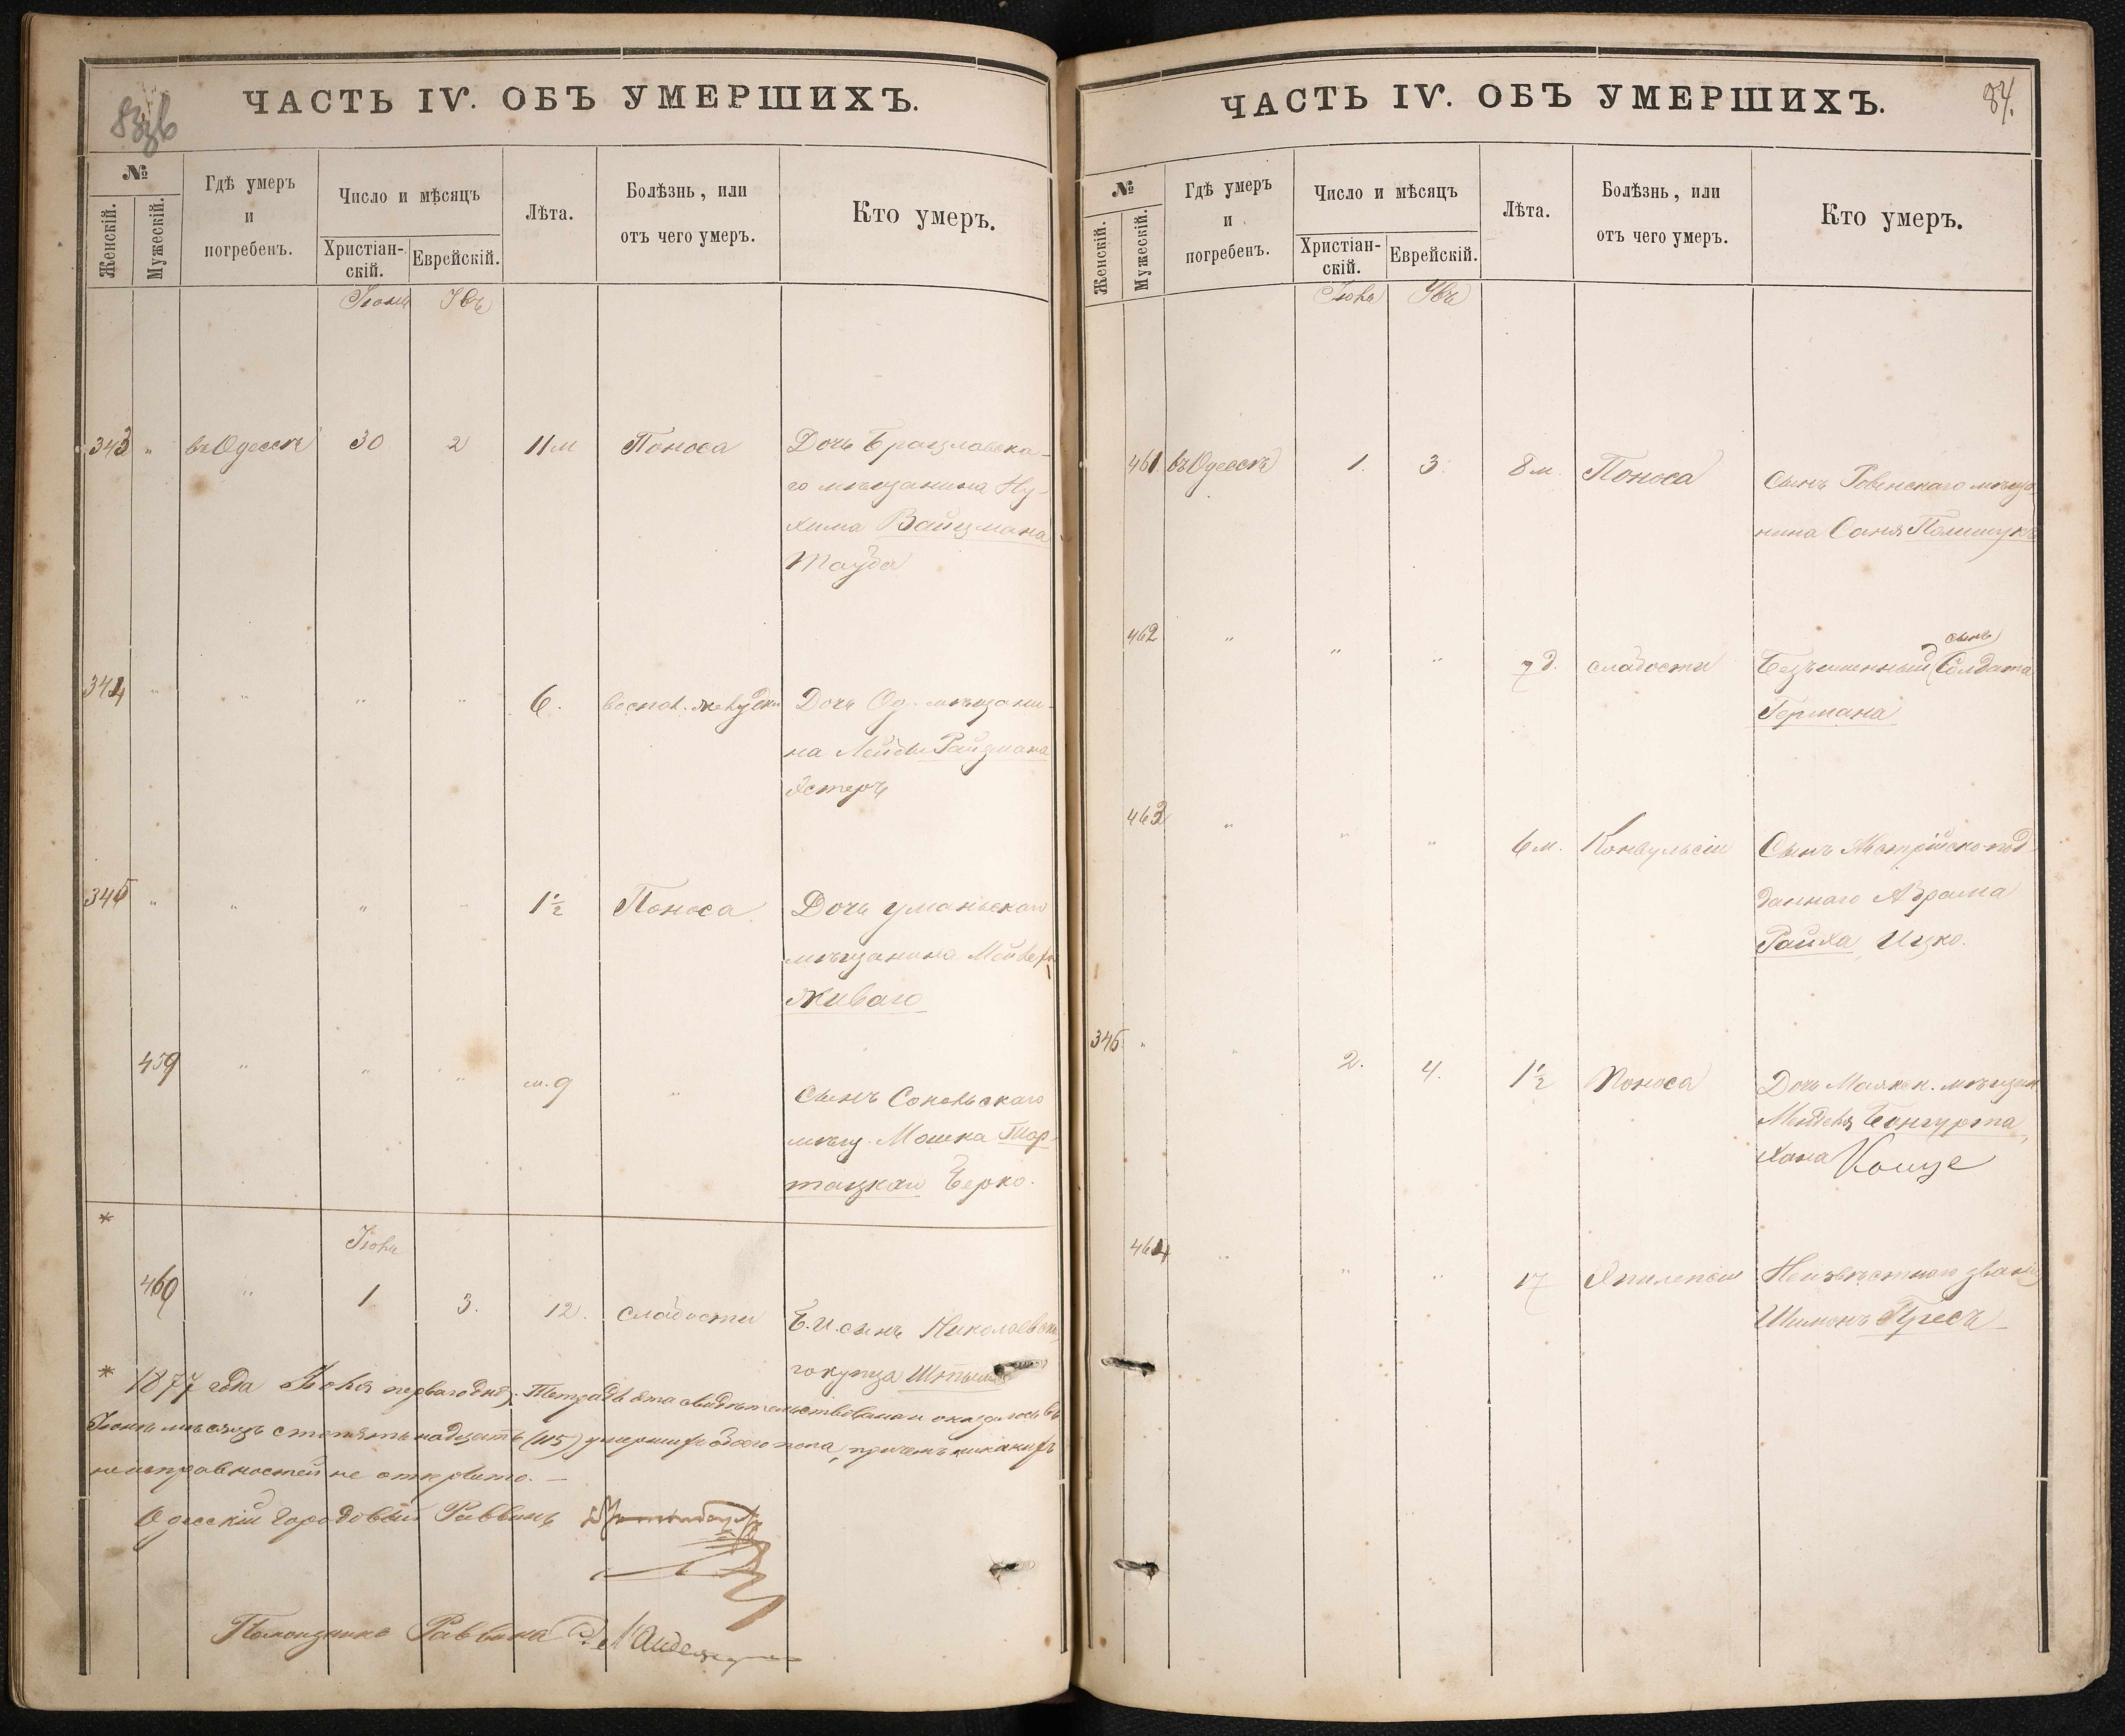 ЧАСТЬ IV. ОБЪ УМЕРШИХЪ.
№
Женскій.
Мужескій.
Гдѣ умеръ
и
погребенъ.
Число и мѣсяцъ
Христіан-
скій.
Еврейскій.
Лѣта.
Болѣзнь, или
отъ чего умеръ.
Кто умеръ.
343 " въ Одессѣ 30 2 11 м Поноса Дочь Брацлавска-
го мѣщанина Ну-
хима Вайцмана
Тауба
344 " " " " 6. воспал. желудка Дочь Од. мѣщани-
на Лейбы Райзмана
Эстеръ
345 " " " " 1 1/2 Поноса Дочь Уманьскаго
мѣщанина
Живаго
459 " " " м. 9 " Сынъ
мѣщ. Мошка
Берко.
*
Іюль
460 " 1 3. 12. слабости Е. И. сынъ Николаевска
го купца
* 1877 года Іюля перваго дня. Тетрадь эта свидѣтельствована и оказалось въ
Іюнѣ мѣсяцѣ сто пятьнадцать (115) умершихъ обоего пола, причемъ никакихъ
неисправностей не открыто. —
Одесскій Городовый Раввинъ
Помощникъ Раввина
ЧАСТЬ IV. ОБЪ УМЕРШИХЪ.
84.
№
Женскій.
Мужескій.
Гдѣ умеръ
и
погребенъ.
Число и мѣсяцъ
Христіан-
скій.
Еврейскій.
Лѣта.
Болѣзнь, или
отъ чего умеръ.
Кто умеръ.
Іюль
461. въ Одессѣ 1. 3. 8 м. Поноса Сынъ Ровенскаго мѣща-
нина Саня Полищукъ
462 " " " 7 д. слабости Безъименный сынъ Солдата
Германа
463 " " " 6 м. Конвульсіи Сынъ Австрійско-под
даннаго Абрама
Райха, Ицко.
346 " " 2. 4. 1 1/2 Поноса Дочь Маякск. мѣщан
Хана
464 " " " 17 Эпилепсіи Неизвѣстнаго званія
Шимонъ